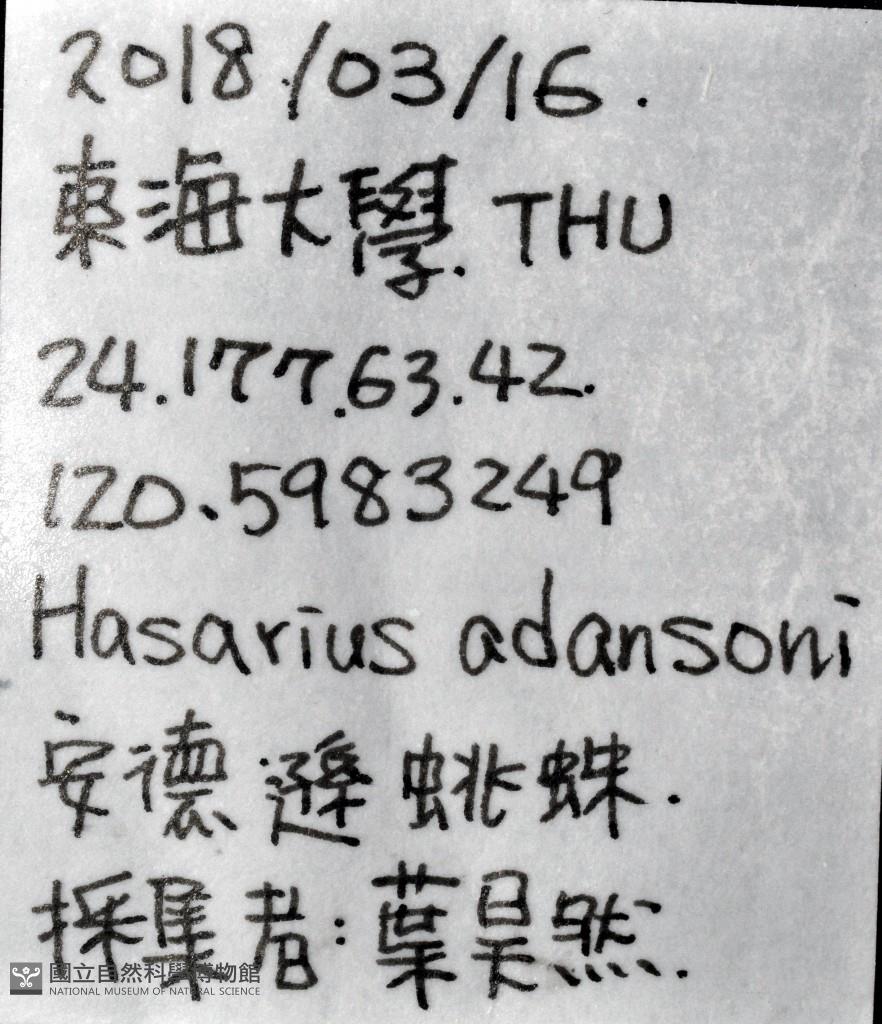 2018/03/16.
東海大學. THU
24.177.63.42.
120.5983249
Hasarius adansoni
安德遜蛛蛛.
採集者:葉昊然.
國立自然科學博物館
NATIONAL MUSEUM OF NATURAL SCIENCE